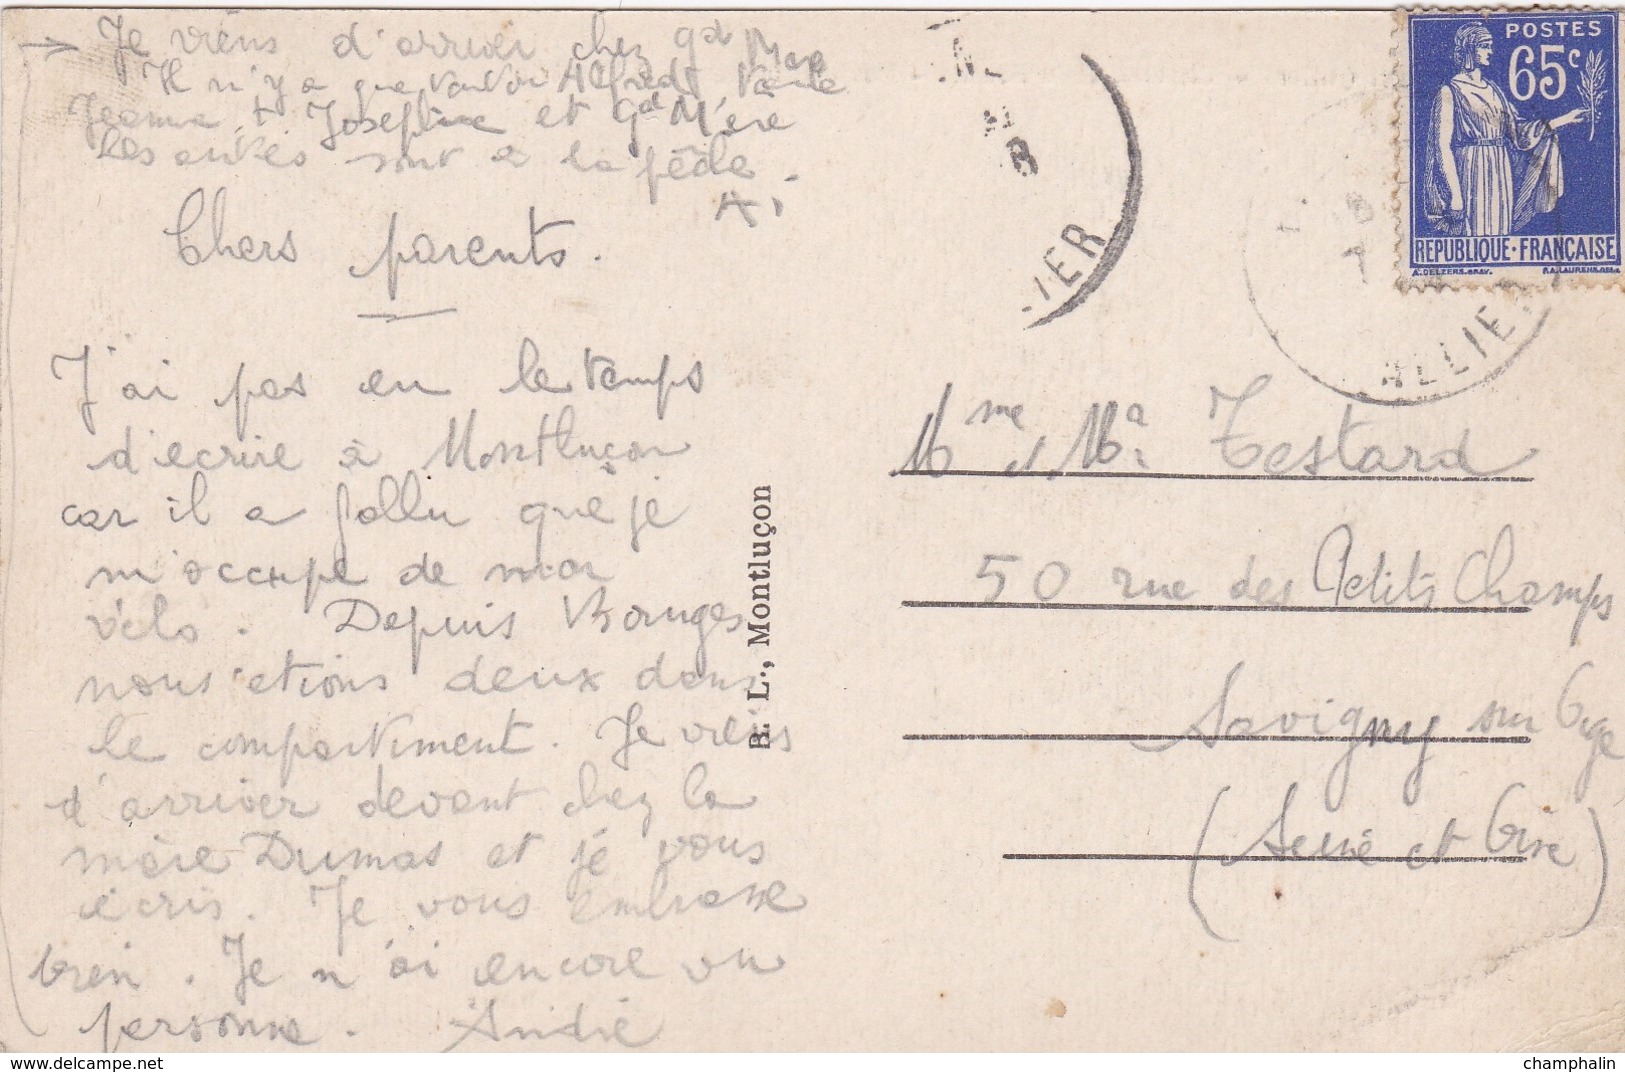 → Je viens d'arriver chez gd Mere
Il n'y a que tonton Alfred tante
Jeanne + Josephine et gd Mère
Les autres sont à la fête
A.
Chers parents.
J'ai pas eu le temps
d'ecrire à Montluçon
car il a fallu que je
m'occupe de mon
vélo. Depuis Bourges
nous etions deux dans
le compartiment. Je viens
d'arriver devant chez la
mère Dumas et je vous
écris. Je vous embrasse
bien. Je n'ai encore vu
personne. André
B. L., Montluçon
ALLIER
POSTES
65c
REPUBLIQUE·FRANÇAISE
ALLIER
Mme et Mr Testard
50 rue des Petits Champs
Savigny sur Orge
(Seine et Oise)
champhalin